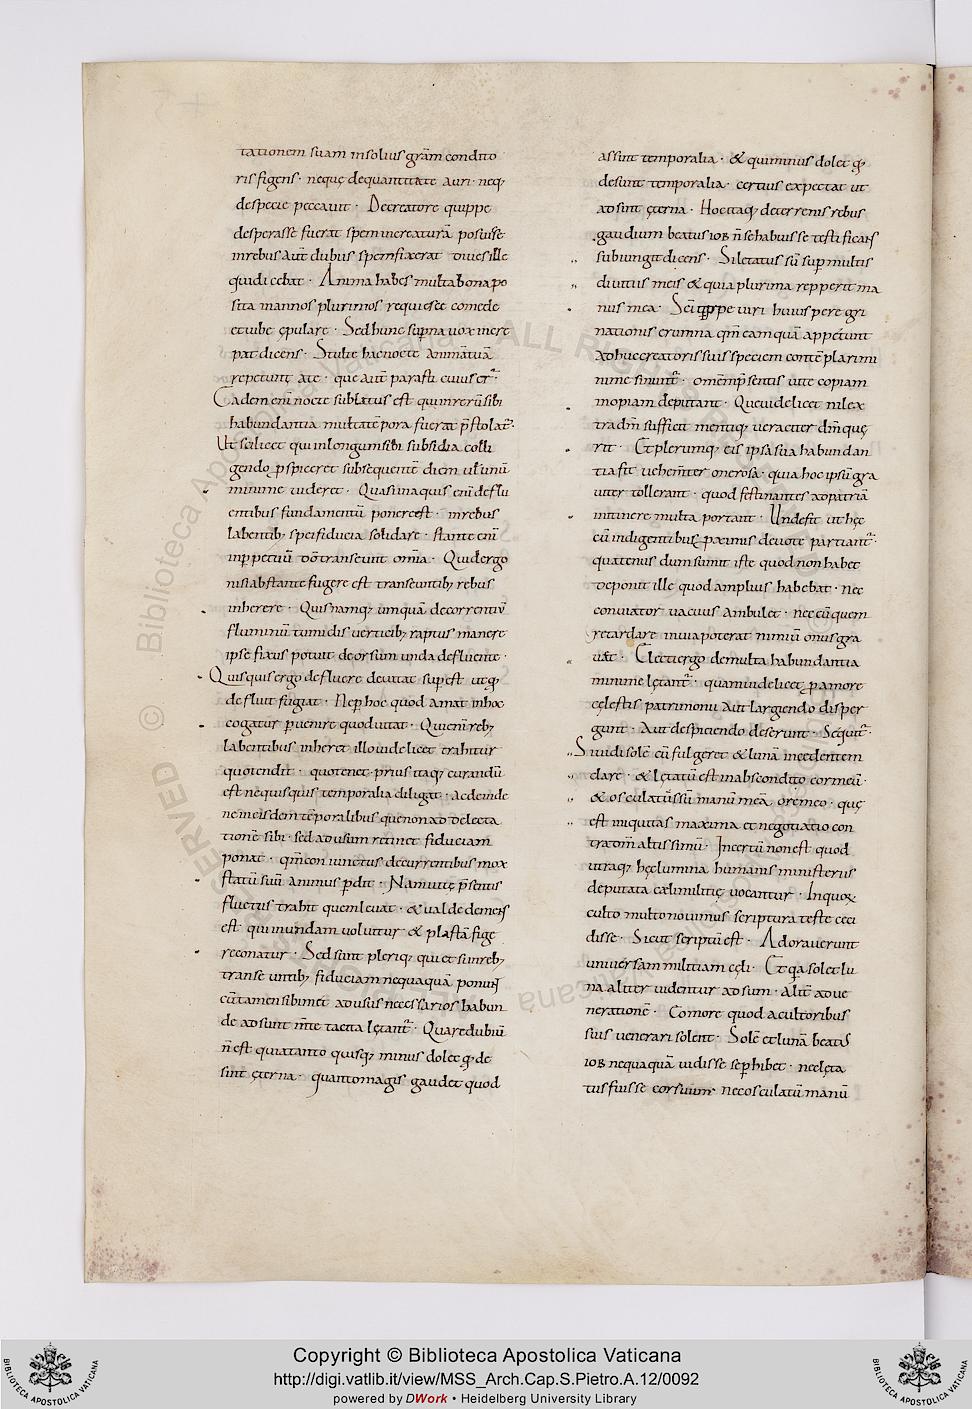 tationem suam in solius gr̄am condito
ris figens · neque de quantitate auri · neq;
de specie peccauit · De creatore quippe
desperasse fuerat spem in creatura posuisse
in rebus aut̄ dubiis spem fixerat diues ille
qui dicebat · Anima habes multa bona po
sita in annos plurimos requiesce comede
et bibe epulare · Sed hunc superna uox incre
pat dicens · Stulte hac nocte animā tuā
repetunt a te · que aut̄ parasti cuius er̄
Eadem eni nocte sublatus est qui rerū sibi
habundantia multa tēpora fuerat p̄stolat̄
Ut scilicet qui in longum sibi subsidia colli
gendo p̄spiceret subsequentē diem ul unū
minime uideret · Quasi in aquis eni deflu
entibus fundamentū ponere est · in rebus
labentib; spei fiduciam solidare · stante eni
in ppetuū dō transeunt om̄ia · Quid ergo
nisi abstante fugere est transeuntib; rebus
inherere · Quis namq; umquā decorrentiū
fluminū tumidis uerticib; raptus manere
ipse fixus potuit deorsum unda defluente ·
Quisquis ergo defluere deuitat supest ut qd̄
defluit fugiat · Ne p hoc quod amat in hoc
cogatur puenire quod uitat · Qui eni reb;
labentibus inheret illo uidelicet trahitur
quo tendit · quo tenet · prius itaq; curandū
est ne quisquis temporalia diligat · ac deinde
ne in eisdem tēporalibus que non ad delecta
tionē sibi · sed ad usum retinet fiduciam
ponat · qm̄ coniunctus decurrentibus mox
statū suū animus pdit · Nam uitę p̄sentis
fluctus trahit quem leuat · & ualde demens
est · qui in undam uoluitur & plantā figere
conatur · Sed sunt pleriq; qui et si in reb;
transeuntib; fiduciam nequaquā ponunt
cū tamen sibimet ad usus necessarios habun
de adsunt m̄te tacita lętant̄ · Qua re dubiū
n̄ est quia tanto quisq; minus dolet qd̄ de
sint ęterna · quanto magis gaudet quod
assint temporalia · & qui minus dolet qd̄
desunt temporalia · certius expectat ut
adsint ęterna · Hoc itaq; de terrenis rebus
gaudium beatus iob n̄ se habuisse testificans
subiungit dicens · Si letatus sū sup multis
diuitiis meis & quia plurima repperit ma
nus mea · Sci quippe uiri huius peregri
nationis erumna qm̄ eam quā appetunt
adhuc creatoris sui speciem contēplari mi
nime sinunt̄ · omēm p̄sentis uite copiam
inopiam deputant · Que uidelicet nil ex
tra dm̄ sufficit mentiq; ueraciter dm̄ quę
rit · Et plerumq; eis ipsa sua habundan
tia fit uehem̄ter onerosa · quia hoc ipsū gra
uiter tollerant · quod festinantes ad patriā
in itinere multa portant · Unde fit ut hęc
cū indigentibus pximis deuote partiant̄ ·
quatenus dum sumit iste quod non habet
deponit ille quod amplius habebat · nec
conuiator uacuus ambulet · nec eū quem
retardare in uia poterat nimiū onus gra
uat · Electi ergo de multa habundantia
minime lętant̄ · quam uidelicet p amore
cęlestis patrimonii aut largiendo disper
gunt · Aut despiciendo deserunt · Sequit̄ ·
Si uidi solē cū fulgeret & lunā incedentem
clare · & lętatū est in abscondito cor meū ·
& osculatus sū manū meā ore meo · quę
est iniquitas maxima et negotiatio con
tra dm̄ altissimū · Incertū non est quod
utraq; hęc lumina humanis ministeriis
deputata cęli militię uocantur · In quorum
culto multo nouimus scriptura teste ceci
disse · Sicut scriptū est · Adorauerunt
uniuersam militiam cęli · Et qa sol et lu
na aliter uidentur ad sum · Alit̄ ad ue
nerationē · Eo more quod a cultoribus
suis uenerari solent · Solē et lunā beatus
iob nequaquā uidisse se phibet · nec lęta
tus fuisse cor suum · nec osculatū manū
Copyright © Biblioteca Apostolica Vaticana
http://digi.vatlib.it/view/MSS_Arch.Cap.S.Pietro.A.12/0092
powered by DWork • Heidelberg University Library